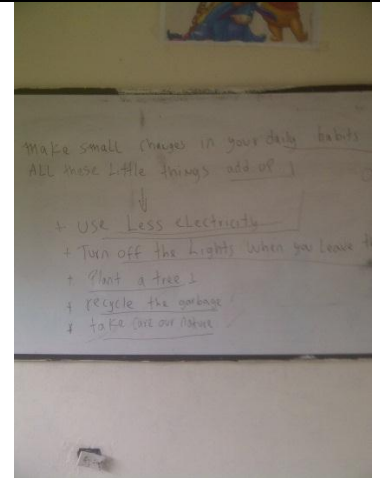 make small changes in your daily habits
ALL these Little things add up !
+ use Less electricity
+ Turn off the Lights when you Leave
+ Plant a tree
+ recycle the garbage
* take care our nature